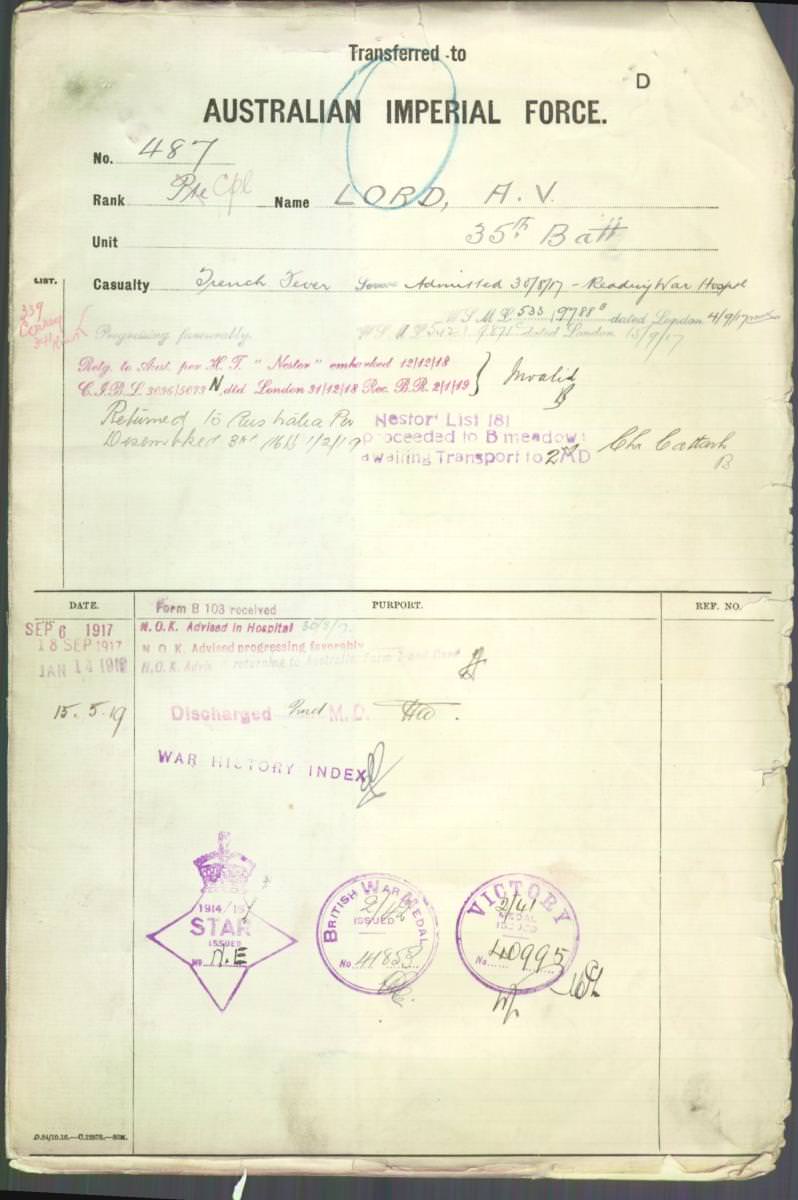 Transferred to
D
AUSTRALIAN IMPERIAL FORCE.
No. 487
Rank Pte Cpl Name LORD, A. V.
Unit 35th Batt
LIST.
Casualty Trench Fever Severe Admitted 30/8/17 - Reading War Hospl
339
W.S.M.L. 533 9788 B dated London 4/9/17
Progressing favourably. dated London 13/9/17
Retg. to Aust. per H.T. "Nestor" embarked 12/12/18
C.I.B.L. 3036/5073 N, dtd London 31/12/18 Rec. B.R. 2/1/19 } Invalid
B
Returned to Australia Per Nestor List 181
Disembarked 3rd MD 1/2/19 proceeded to Bmeadows
awaiting Transport to 2nd MD
B
DATE. PURPORT. REF. NO.
Form B 103 received
SEP 6 1917 N.O.K. Advised in Hospital 30/8/17.
18 SEP 1917 N.O.K. Advised progressing favorably
JAN 14 1919 N.O.K. Advised returning to Australia Form
15.5.19 Discharged 2nd M.D.
WAR HISTORY INDEX
1914/15
STAR
ISSUED
No N.E
BRITISH WAR MEDAL
2/42
ISSUED
No. 41853
VICTORY
2/41
MEDAL
ISSUED
No. 40995
D.84/10.16.—C.12878.—50M.